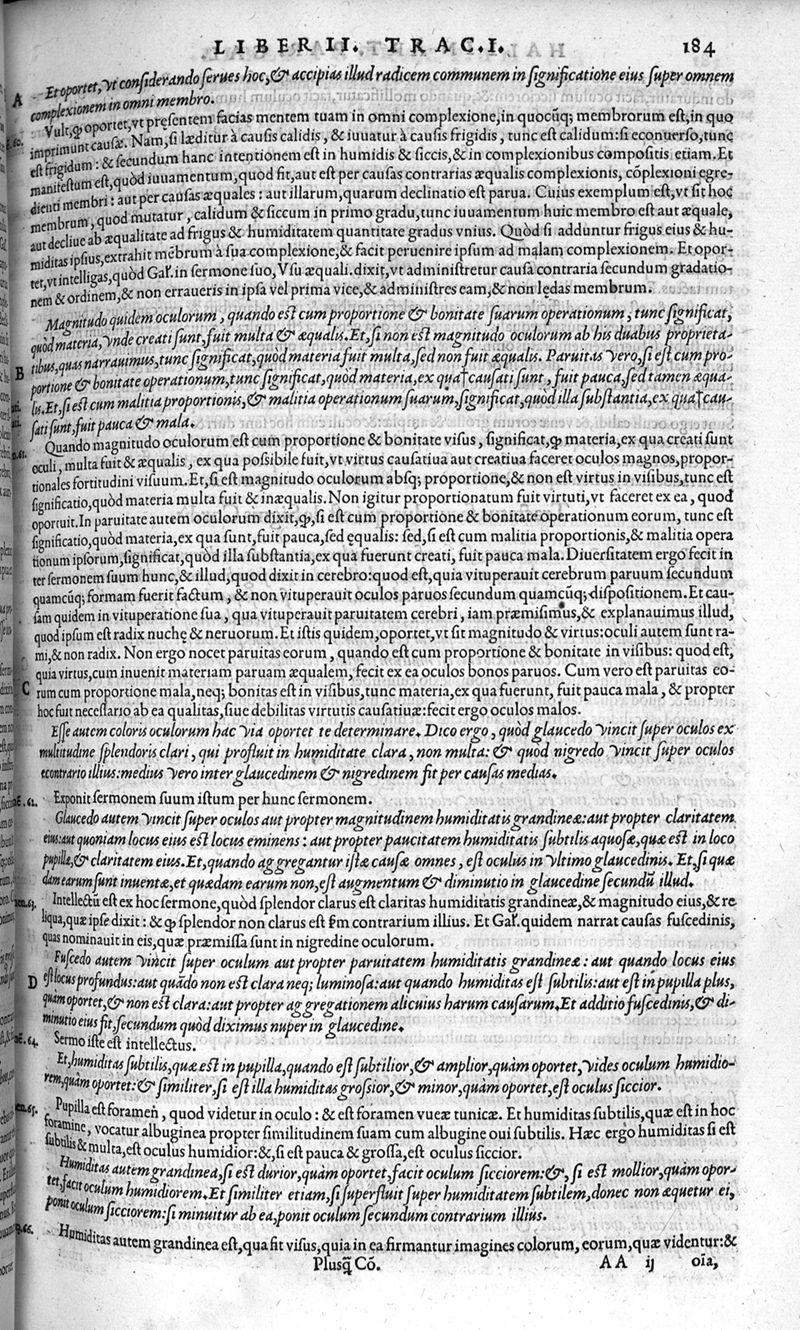 LIBER II. TRAC. I. 184
Et oportet, vt considerando serues hoc, & accipias illud radicem communem in significatione eius super omnem
A complexionem in omni membro.
Vult, ꝙ oportet, vt presentem facias mentem tuam in omni complexione, in quocūq; membrorum est, in quo
imprimunt causæ. Nam, si læditur à causis calidis, & iuuatur à causis frigidis, tunc est calidum: si econuerso, tunc
est frigidum: & secundum hanc intentionem est in humidis & siccis, & in complexionibus compositis etiam. Et
manifestum est, quòd iuuamentum, quod fit, aut est per causas contrarias æqualis complexionis, cōplexioni egre-
dienti membri: aut per causas æquales: aut illarum, quarum declinatio est parua. Cuius exemplum est, vt sit hoc
membrum, quod mutatur, calidum & siccum in primo gradu, tunc iuuamentum huic membro est aut æquale,
aut decliue ab æqualitate ad frigus & humiditatem quantitate gradus vnius. Quòd si adduntur frigus eius & hu-
miditas ipsius, extrahit mēbrum à sua complexione, & facit peruenire ipsum ad malam complexionem. Et opor-
tet, vt intelligas, quòd Gal. in sermone suo, Vsu æquali. dixit, vt administretur causa contraria secundum gradatio-
nem & ordinem, & non erraueris in ipsa vel prima vice, & administres eam, & non lędas membrum.
Magnitudo quidem oculorum, quando est cum proportione & bonitate suarum operationum, tunc significat,
quòd materia, vnde creati sunt, fuit multa & æqualis. Et, si non est magnitudo oculorum ab his duabus proprieta-
tibus, quas narrauimus, tunc significat, quòd materia fuit multa, sed non fuit æqualis. Paruitas vero, si est cum pro-
B portione & bonitate operationum, tunc significat, quòd materia, ex qua causati sunt, fuit pauca, sed tamen æqua-
lis. Et, si est cum malitia proportionis, & malitia operationum suarum, significat, quòd illa substantia, ex qua cau-
sati sunt, fuit pauca & mala.
Quando magnitudo oculorum est cum proportione & bonitate visus, significat, ꝙ materia, ex qua creati sunt
oculi, multa fuit & æqualis, ex qua possibile fuit, vt virtus causatiua aut creatiua faceret oculos magnos, propor-
tionales fortitudini visuum. Et, si est magnitudo oculorum absq; proportione, & non est virtus in visibus, tunc est
significatio, quòd materia multa fuit & inæqualis. Non igitur proportionatum fuit virtuti, vt faceret ex ea, quod
oportuit. In paruitate autem oculorum dixit, ꝙ, si est cum proportione & bonitate operationum eorum, tunc est
significatio, quòd materia, ex qua sunt, fuit pauca, sed ęqualis: sed, si est cum malitia proportionis, & malitia opera
tionum ipsorum, significat, quòd illa substantia, ex qua fuerunt creati, fuit pauca mala. Diuersitatem ergo fecit in
ter sermonem suum hunc, & illud, quod dixit in cerebro: quod est, quia vituperauit cerebrum paruum secundum
quamcūq; formam fuerit factum, & non vituperauit oculos paruos secundum quamcūq; dispositionem. Et cau-
sam quidem in vituperatione sua, qua vituperauit paruitatem cerebri, iam præmisimus, & explanauimus illud,
quod ipsum est radix nuchę & neruorum. Et istis quidem, oportet, vt sit magnitudo & virtus: oculi autem sunt ra-
mi, & non radix. Non ergo nocet paruitas eorum, quando est cum proportione & bonitate in visibus: quod est,
quia virtus, cum inuenit materiam paruam æqualem, fecit ex ea oculos bonos paruos. Cum vero est paruitas eo-
C rum cum proportione mala, neq; bonitas est in visibus, tunc materia, ex qua fuerunt, fuit pauca mala, & propter
hoc fuit necessario ab ea qualitas, siue debilitas virtutis causatiuæ: fecit ergo oculos malos.
Esse autem coloris oculorum hac via oportet te determinare. Dico ergo, quòd glaucedo vincit super oculos ex
multitudine splendoris clari, qui profluit in humiditate clara, non multa: & quòd nigredo vincit super oculos
econtrario illius: medius vero inter glaucedinem & nigredinem fit per causas medias.
61. Exponit sermonem suum istum per hunc sermonem.
Glaucedo autem vincit super oculos aut propter magnitudinem humiditatis grandineæ: aut propter claritatem
eius: aut quoniam locus eius est locus eminens: aut propter paucitatem humiditatis subtilis aquosæ, quæ est in loco
pupillæ, & claritatem eius. Et, quando aggregantur istæ causæ omnes, est oculus in vltimo glaucedinis. Et, si quæ
dam earum sunt inuentæ, et quædam earum non, est augmentum & diminutio in glaucedine secundū illud.
63. Intellectū est ex hoc sermone, quòd splendor clarus est claritas humiditatis grandineæ, & magnitudo eius, & re
liqua, quæ ipse dixit: & ꝙ splendor non clarus est sm contrarium illius. Et Gal. quidem narrat causas fuscedinis,
quas nominauit in eis, quæ præmissa sunt in nigredine oculorum.
Fuscedo autem vincit super oculum aut propter paruitatem humiditatis grandineæ: aut quando locus eius
D est locus profundus: aut quādo non est clara neq; luminosa: aut quando humiditas est subtilis: aut est in pupilla plus,
quàm oportet, & non est clara: aut propter aggregationem alicuius harum causarum. Et additio fuscedinis, & di-
minutio eius fit, secundum quòd diximus nuper in glaucedine.
64. Sermo iste est intellectus.
Et, humiditas subtilis, quæ est in pupilla, quando est subtilior, & amplior, quàm oportet, vides oculum humidio-
rem, quàm oportet: & similiter, si est illa humiditas grossior, & minor, quàm oportet, est oculus siccior.
65. Pupilla est foramen, quod videtur in oculo: & est foramen vueæ tunicæ. Et humiditas subtilis, quæ est in hoc
foramine, vocatur albuginea propter similitudinem suam cum albugine oui subtilis. Hæc ergo humiditas si est
subtilis & multa, est oculus humidior: &, si est pauca & grossa, est oculus siccior.
Humiditas autem grandinea, si est durior, quàm oportet, facit oculum sicciorem: &, si est mollior, quàm opor-
tet, facit oculum humidiorem. Et similiter etiam, si superfluit super humiditatem subtilem, donec non æquetur ei,
ponit oculum sicciorem: si minuitur ab ea, ponit oculum secundum contrarium illius.
66. Humiditas autem grandinea est, qua fit visus, quia in ea firmantur imagines colorum, eorum, quæ videntur: &
Plusq̄ Cō. A A ij oīa,